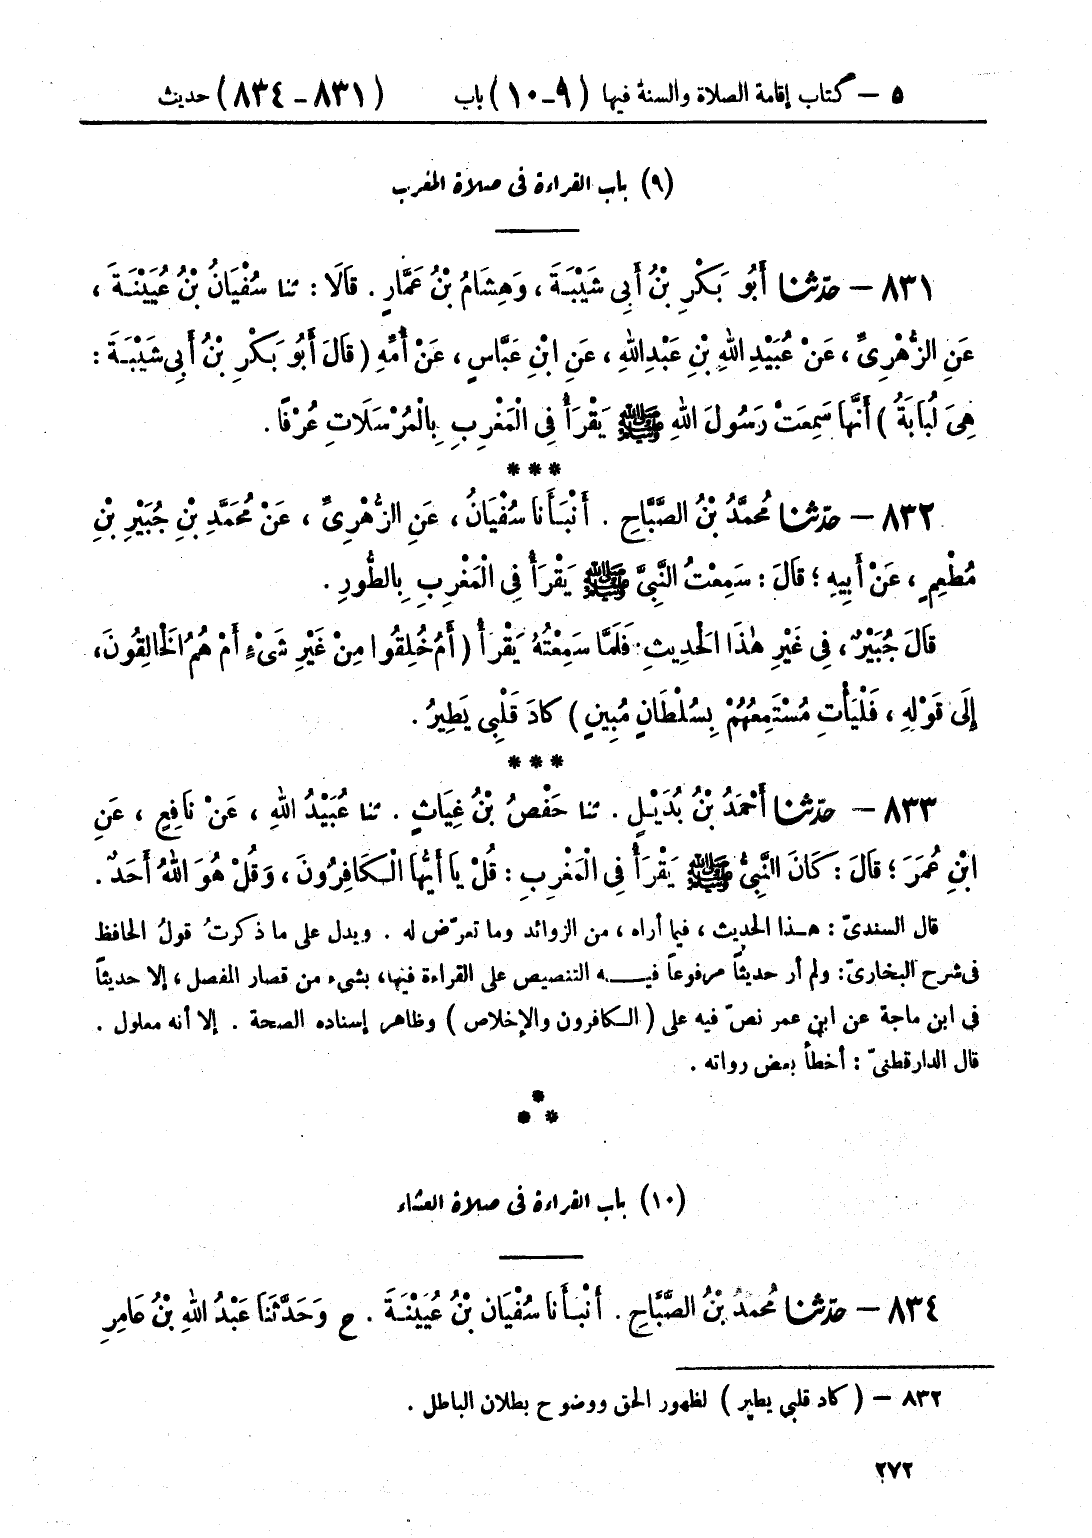 ٥ – كتاب إقامة الصلاة والسنة فيها (٩-١٠) باب (٨٣١-٨٣٤) حديث
(٩) باب القراءة فى صلاة المغرب
٨٣١ – حدّثنا أَبُو بَكْرِ بْنُ أَبِى شَيْبَةَ ، وَهِشَامُ بْنُ عَمَّارٍ . قَالَا : ثنا سُفْيَانُ بْنُ عُيَيْنَةَ ،
عَنِ الزُّهْرِىِّ ، عَنْ عُبَيْدِ اللهِ بْنِ عَبْدِ اللهِ ، عَنِ ابْنِ عَبَّاسٍ ، عَنْ أُمِّهِ ( قَالَ أَبُو بَكْرِ بْنُ أَبِى شَيْبَةَ :
هِىَ لُبَابَةُ ) أَنَّهَا سَمِعَتْ رَسُولَ اللهِ ﷺ يَقْرَأُ فِى الْمَغْرِبِ بِالْمُرْسَلَاتِ عُرْفًا .
***
٨٣٢ – حدّثنا مُحَمَّدُ بْنُ الصَّبَّاحِ . أَنْبَأَنَا سُفْيَانُ ، عَنِ الزُّهْرِىِّ ، عَنْ مُحَمَّدِ بْنِ جُبَيْرِ بْنِ
مُطْعِمٍ ، عَنْ أَبِيهِ ؛ قَالَ : سَمِعْتُ النَّبِىَّ ﷺ يَقْرَأُ فِى الْمَغْرِبِ بِالطُّورِ .
قَالَ جُبَيْرٌ ، فِى غَيْرِ هٰذَا الْحَدِيثِ : فَلَمَّا سَمِعْتُهُ يَقْرَأُ ( أَمْ خُلِقُوا مِنْ غَيْرِ شَىْءٍ أَمْ هُمُ الْخَالِقُونَ ،
إِلَى قَوْلِهِ ، فَلْيَأْتِ مُسْتَمِعُهُمْ بِسُلْطَانٍ مُبِينٍ ) كَادَ قَلْبِى يَطِيرُ .
***
٨٣٣ – حدّثنا أَحْمَدُ بْنُ بُدَيْلٍ . ثنا حَفْصُ بْنُ غِيَاثٍ . ثنا عُبَيْدُ اللهِ ، عَنْ نَافِعٍ ، عَنِ
ابْنِ عُمَرَ ؛ قَالَ : كَانَ النَّبِىُّ ﷺ يَقْرَأُ فِى الْمَغْرِبِ : قُلْ يَا أَيُّهَا الْكَافِرُونَ ، وَقُلْ هُوَ اللهُ أَحَدٌ .
قال السندىّ : هذا الحديث ، فيما أراه ، من الزوائد وما تعرّض له . ويدل على ما ذكرتُ قولُ الحافظ
فى شرح البخارىّ : ولم أر حديثاً مرفوعاً فيه التنصيص على القراءة فيها ، بشىء من قصار المفصل ، إلا حديثاً
فى ابن ماجة عن ابن عمر نصّ فيه على ( الكافرون والإخلاص ) وظاهر إسناده الصحة . إلا أنه معلول .
قال الدارقطنىّ : أخطأ بعض رواته .
***
(١٠) باب القراءة فى صلاة العشاء
٨٣٤ – حدّثنا مُحَمَّدُ بْنُ الصَّبَّاحِ . أَنْبَأَنَا سُفْيَان بْنُ عُيَيْنَةَ . ح وَحَدَّثَنَا عَبْدُ اللهِ بْنُ عَامِرِ
٨٣٢ – ( كاد قلبي يطير ) لظهور الحق ووضوح بطلان الباطل .
٢٧٢